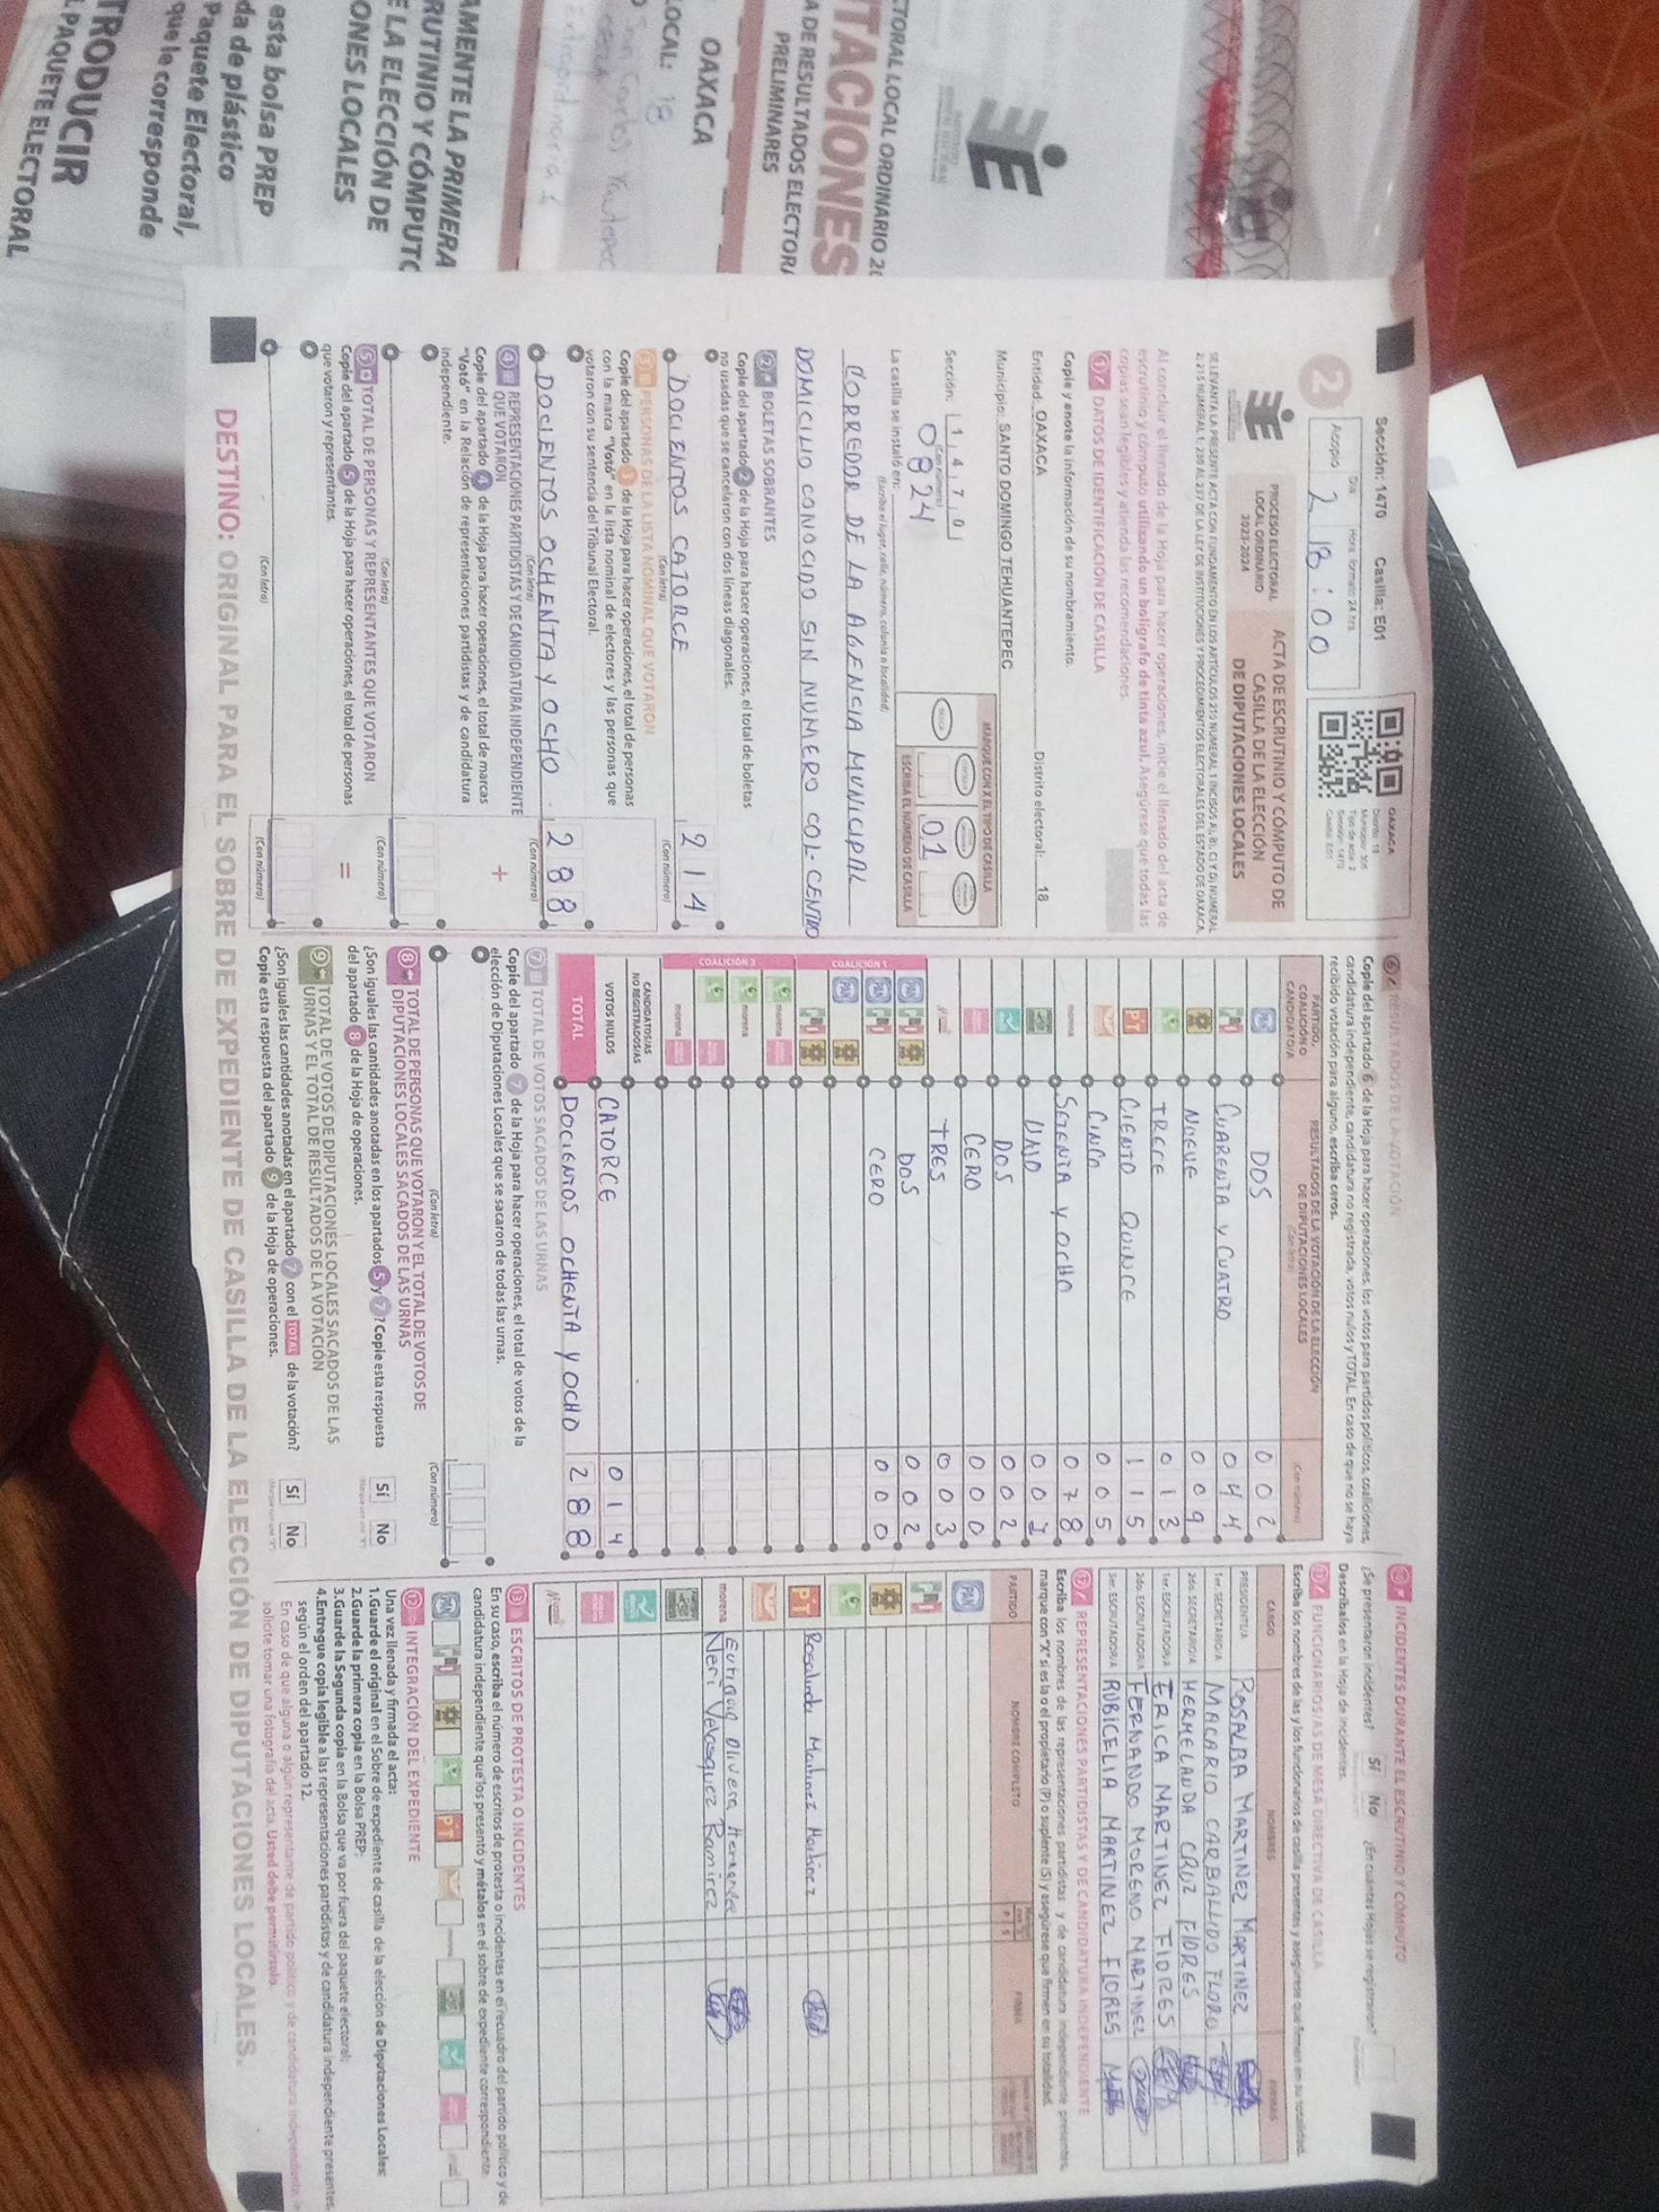 Sección: 1470 Casilla: E01
2
Acopio
Día
Hora formato 24 hrs.
2 18:00
OAXACA
PROCESO ELECTORAL
LOCAL ORDINARIO
2023-2024
ACTA DE ESCRUTINIO Y CÓMPUTO DE
CASILLA DE LA ELECCIÓN
DE DIPUTACIONES LOCALES
Al concluir el llenado de la Hoja para hacer operaciones, inicie el llenado del acta de
escrutinio y cómputo utilizando un bolígrafo de tinta azul. Asegúrese que todas las
copias sean legibles y atienda las recomendaciones.
1 DATOS DE IDENTIFICACIÓN DE CASILLA
Copie y anote la información de su nombramiento.
Entidad: OAXACA Distrito electoral: 18
Municipio: SANTO DOMINGO TEHUANTEPEC
Sección: 1 4 7 0
(Con número)
0824
MARQUE CON X EL TIPO DE CASILLA
ESCRIBA EL NÚMERO DE CASILLA
01
La casilla se instaló en:
(Escriba el lugar, calle, número, colonia o localidad)
CORREDOR DE LA AGENCIA MUNICIPAL
DOMICILIO CONOCIDO SIN NUMERO COL. CENTRO
2 BOLETAS SOBRANTES
Copie del apartado 2 de la Hoja para hacer operaciones, el total de boletas
no usadas que se cancelaron con dos líneas diagonales.
DOCIENTOS CATORCE 214
(Con letra) (Con número)
3 PERSONAS DE LA LISTA NOMINAL QUE VOTARON
Copie del apartado 3 de la Hoja para hacer operaciones, el total de personas
con la marca "Votó" en la lista nominal de electores y las personas que
votaron con su sentencia del Tribunal Electoral.
DOCIENTOS OCHENTA Y OCHO 288
(Con letra) (Con número)
4 REPRESENTACIONES PARTIDISTAS Y DE CANDIDATURA INDEPENDIENTE
QUE VOTARON
+
Copie del apartado 4 de la Hoja para hacer operaciones, el total de marcas
"Votó" en la Relación de representaciones partidistas y de candidatura
independiente.
(Con letra) (Con número)
5 TOTAL DE PERSONAS Y REPRESENTANTES QUE VOTARON
=
Copie del apartado 5 de la Hoja para hacer operaciones, el total de personas
que votaron y representantes.
(Con letra) (Con número)
6 RESULTADOS DE LA VOTACIÓN
Copie del apartado 6 de la Hoja para hacer operaciones, los votos para partidos políticos, coaliciones,
candidatura independiente, candidatura no registrada, votos nulos y TOTAL. En caso de que no se haya
recibido votación para alguno, escriba ceros.
PARTIDO,
COALICIÓN O
CANDIDATO/A
RESULTADOS DE LA VOTACIÓN DE LA ELECCIÓN
DE DIPUTACIONES LOCALES
(Con letra)
(Con número)
PAN DOS 002
CUARENTA Y CUATRO 044
NUEVE 009
TRECE 013
PT CIENTO QUINCE 115
CINCO 005
morena SETENTA Y OCHO 078
UNO 001
DOS 002
CERO 000
TRES 003
COALICIÓN 1
PAN DOS 002
PAN CERO 000
PAN
COALICIÓN 2
morena
morena
morena
CANDIDATOS/AS
NO REGISTRADOS/AS
VOTOS NULOS CATORCE 014
TOTAL DOCIENTOS OCHENTA Y OCHO 288
7 TOTAL DE VOTOS SACADOS DE LAS URNAS
Copie del apartado 7 de la Hoja para hacer operaciones, el total de votos de la
elección de Diputaciones Locales que se sacaron de todas las urnas.
(Con letra) (Con número)
8 TOTAL DE PERSONAS QUE VOTARON Y EL TOTAL DE VOTOS DE
DIPUTACIONES LOCALES SACADOS DE LAS URNAS
¿Son iguales las cantidades anotadas en los apartados 5 y 7? Copie esta respuesta
del apartado 8 de la Hoja de operaciones.
Sí No
9 TOTAL DE VOTOS DE DIPUTACIONES LOCALES SACADOS DE LAS
URNAS Y EL TOTAL DE RESULTADOS DE LA VOTACIÓN
¿Son iguales las cantidades anotadas en el apartado 7 con el TOTAL de la votación?
Copie esta respuesta del apartado 9 de la Hoja de operaciones.
Sí No
10 INCIDENTES DURANTE EL ESCRUTINIO Y CÓMPUTO
¿Se presentaron incidentes? Sí No ¿En cuántas Hojas se registraron?
Descríbalos en la Hoja de Incidentes.
11 FUNCIONARIOS/AS DE MESA DIRECTIVA DE CASILLA
Escriba los nombres de las y los funcionarios de casilla presentes y asegúrese que firmen en su totalidad.
CARGO NOMBRES FIRMAS
PRESIDENTE/A ROSALBA MARTINEZ MARTINEZ
1er. SECRETARIO/A MACARIO CARBALLIDO FLORO
2do. SECRETARIO/A HERMELANDA CRUZ FLORES
1er. ESCRUTADOR/A ERICA MARTINEZ FLORES
2do. ESCRUTADOR/A FERNANDO MORENO MARTINEZ
3er. ESCRUTADOR/A RUBICELIA MARTINEZ FLORES
12 REPRESENTACIONES PARTIDISTAS Y DE CANDIDATURA INDEPENDIENTE
Escriba los nombres de las representaciones partidistas y de candidatura independiente presentes,
marque con "X" si es la o el propietario (P) o suplente (S) y asegúrese que firmen en su totalidad.
PARTIDO NOMBRE COMPLETO FIRMA
PAN
PT Rosalinda Martinez Martinez
morena Eutiquia Olivera Hernandez
Neri Velasquez Ramirez
13 ESCRITOS DE PROTESTA O INCIDENTES
En su caso, escriba el número de escritos de protesta o incidentes en el recuadro del partido político y de
candidatura independiente que los presentó y métalos en el sobre de expediente correspondiente.
PAN PT
INTEGRACIÓN DEL EXPEDIENTE
Una vez llenada y firmada el acta:
1.Guarde el original en el Sobre de expediente de casilla de la elección de Diputaciones Locales;
2.Guarde la primera copia en la Bolsa PREP;
3.Guarde la Segunda copia en la Bolsa que va por fuera del paquete electoral;
4.Entregue copia legible a las representaciones partidistas y de candidatura independiente presentes,
según el orden del apartado 12.
En caso de que alguna o algún representante de partido político y de candidatura independiente, le
solicite tomar una fotografía del acta. Usted debe permitírselo.
DESTINO: ORIGINAL PARA EL SOBRE DE EXPEDIENTE DE CASILLA DE LA ELECCIÓN DE DIPUTACIONES LOCALES.
CTORAL LOCAL ORDINARIO 20
TACIONES
A DE RESULTADOS ELECTORA
PRELIMINARES
OAXACA
LOCAL: 18
San Carlos Yautepec
Extraordinaria 1
AMENTE LA PRIMERA
RUTINIO Y CÓMPUTO
E LA ELECCIÓN DE
ONES LOCALES
esta bolsa PREP
da de plástico
Paquete Electoral,
que le corresponde
TRODUCIR
L PAQUETE ELECTORAL